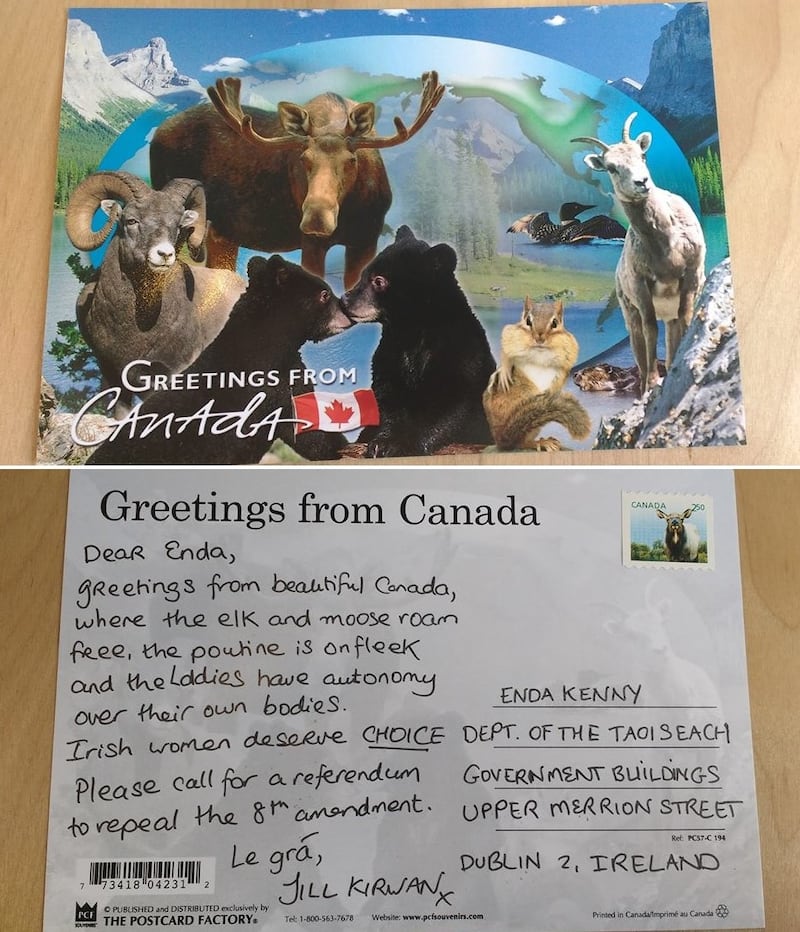 GREETINGS FROM
CANADA
Greetings from Canada
CANADA 250
Dear Enda,
greetings from beautiful Canada,
where the elk and moose roam
free, the poutine is onfleek
and the Laddies have autonomy
over their own bodies.
Irish women deserve CHOICE
Please call for a referendum
to repeal the 8th amendment.
Le grá,
JILL KIRWAN x
ENDA KENNY
DEPT. OF THE TAOISEACH
GOVERNMENT BUILDINGS
UPPER MERRION STREET
Ref: PC57-C 194
DUBLIN 2, IRELAND
7 73418 04231 2
PCF
SOUVENIRS
© PUBLISHED and DISTRIBUTED exclusively by
THE POSTCARD FACTORY®
Tel: 1-800-563-7678 Website: www.pcfsouvenirs.com
Printed in Canada/Imprimé au Canada